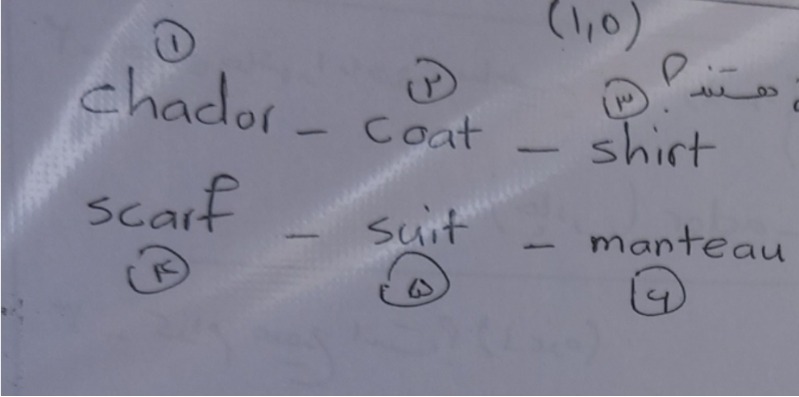 (۱,۵)
① ② ③ هستند؟
chador - coat - shirt
scarf - suit - manteau
④ ⑤ ⑥